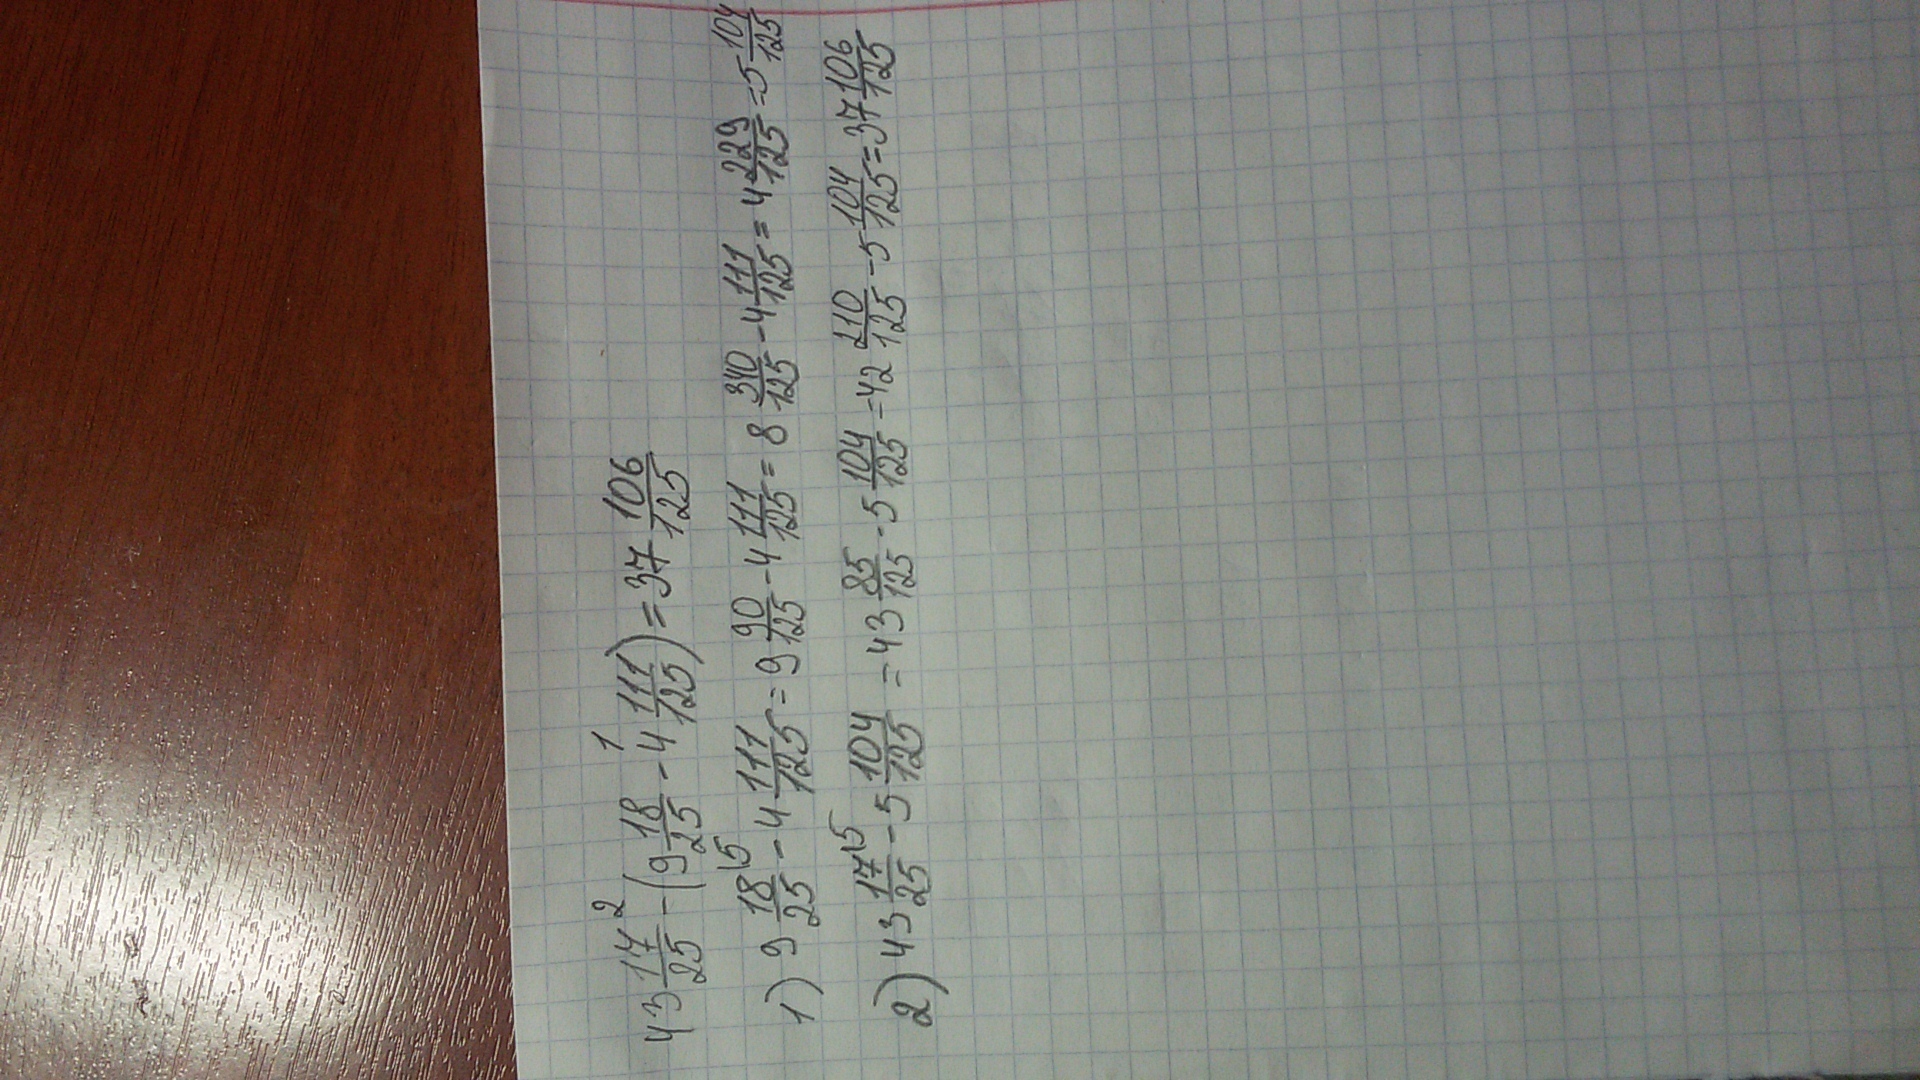 43 17/25 - (9 18/25 - 4 111/125) = 37 106/125
1) 9 18/25 - 4 111/125 = 9 90/125 - 4 111/125 = 8 340/125 - 4 111/125 = 4 229/125 = 5 104/125
2) 43 17/25 - 5 104/125 = 43 85/125 - 5 104/125 = 42 210/125 - 5 104/125 = 37 106/125